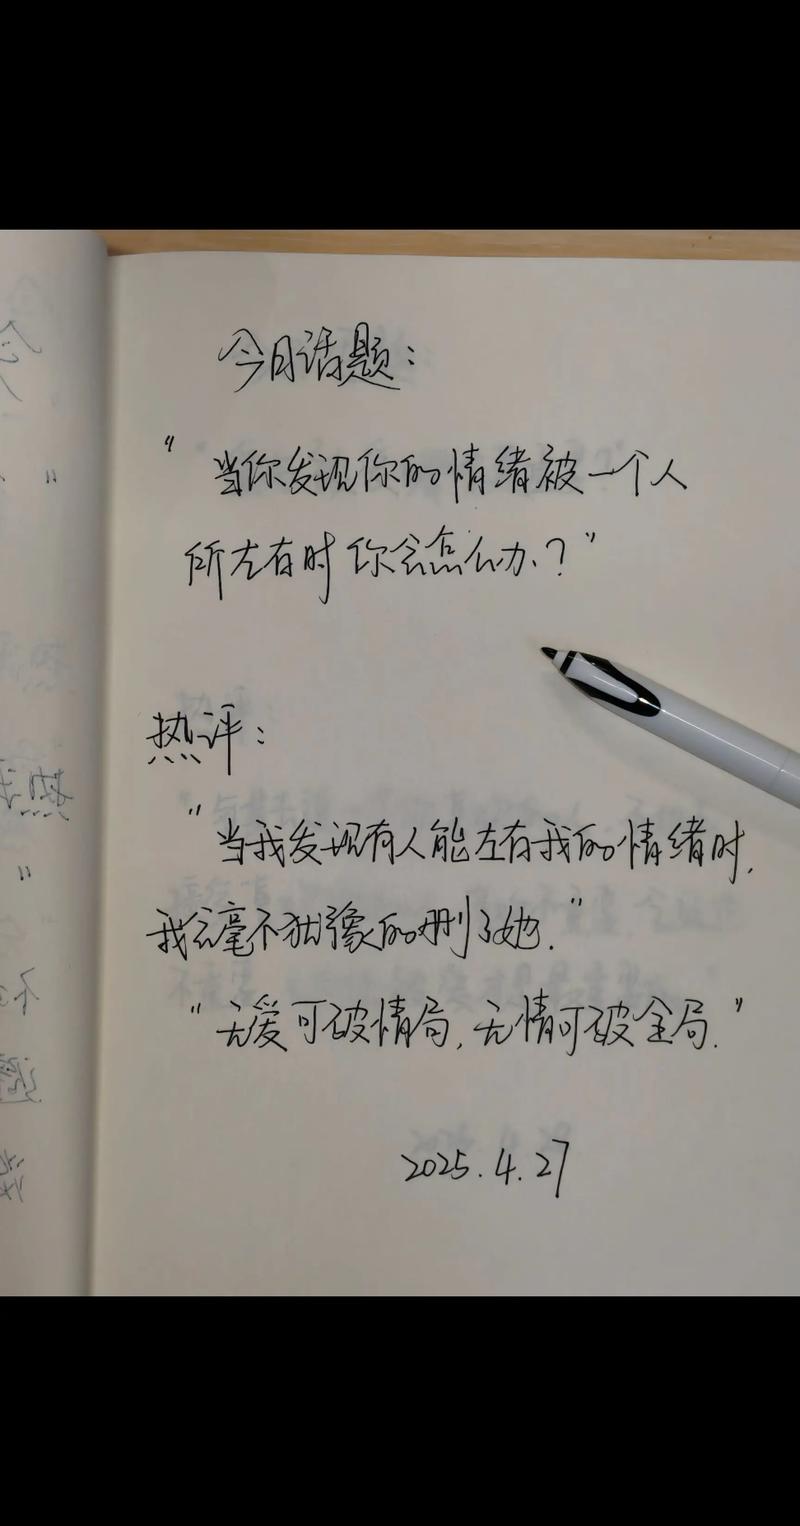 今日话题：
“当你发现你的情绪被一个人
所左右时你会怎么办？”
热评：
“当我发现有人能左右我的情绪时，
我会毫不犹豫的删了她．”
“无爱可破情局，无情可破全局．”
2025.4.27